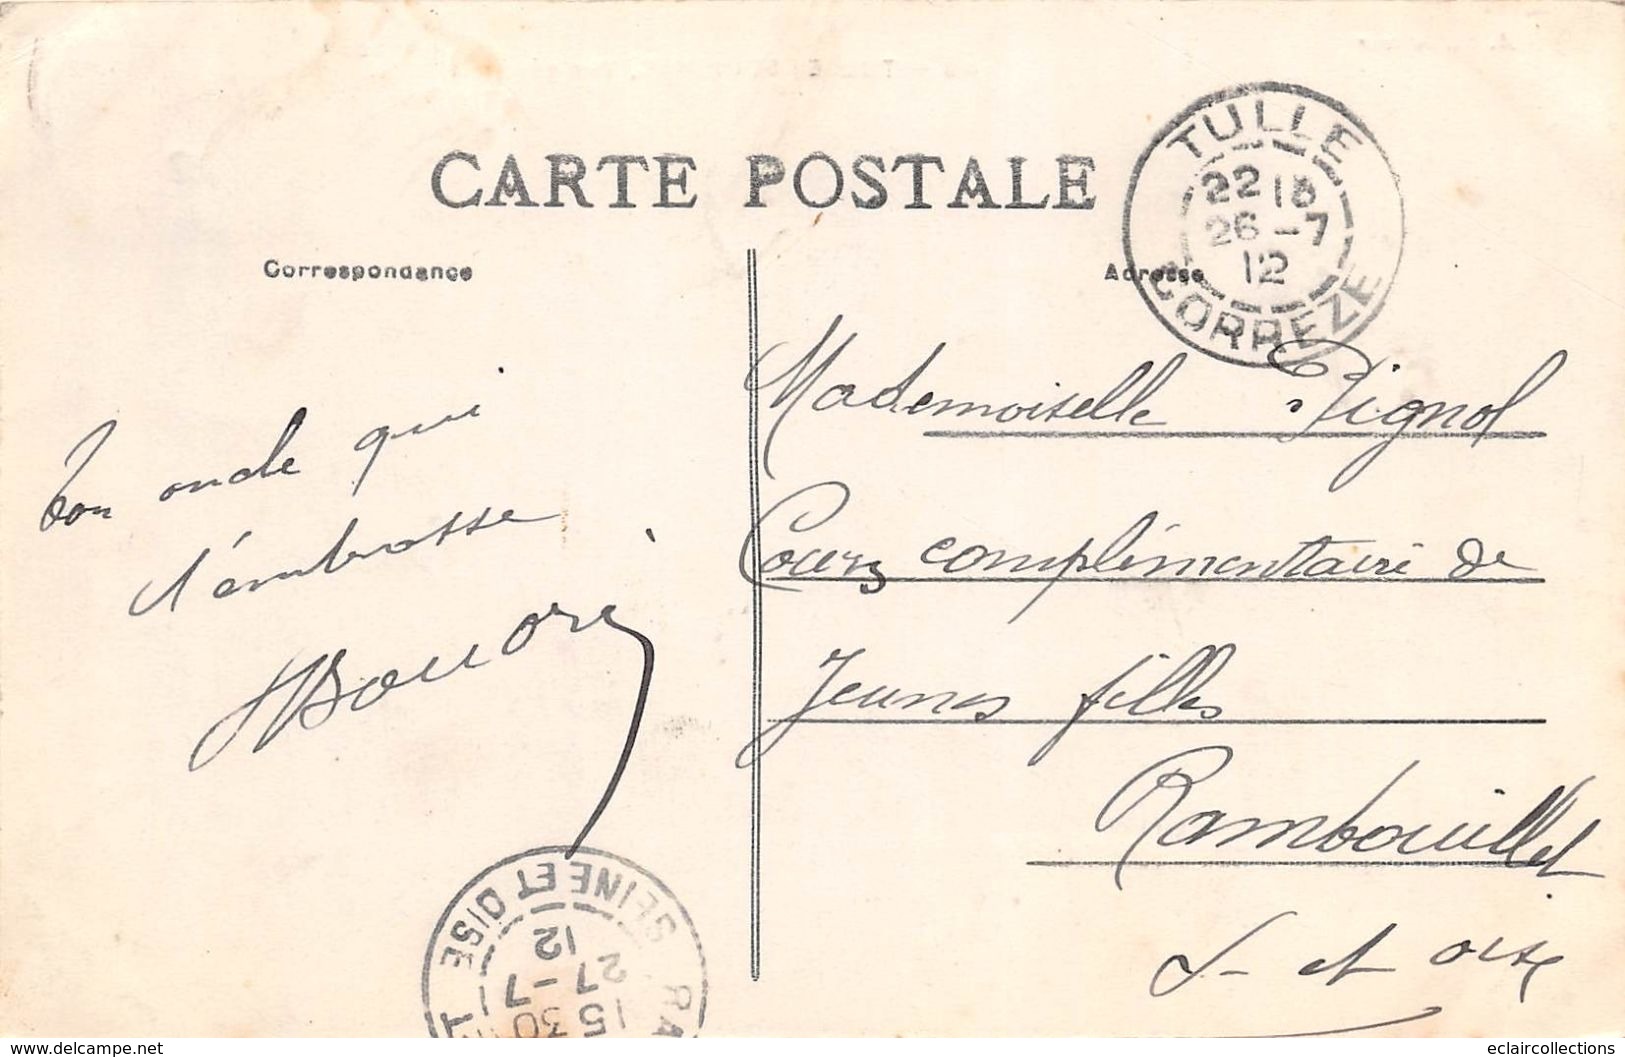 CARTE POSTALE
Correspondance
Adresse
TULLE
22 15
26 -7
12
CORREZE
Ton oncle qui
t'embrasse
Mademoiselle Pignol
Cours complémentaire de
Jeunes filles
Rambouillet
S- et oise
SEINE ET OISE
12
27 -7
15 30
www.delcampe.net
eclaircollections